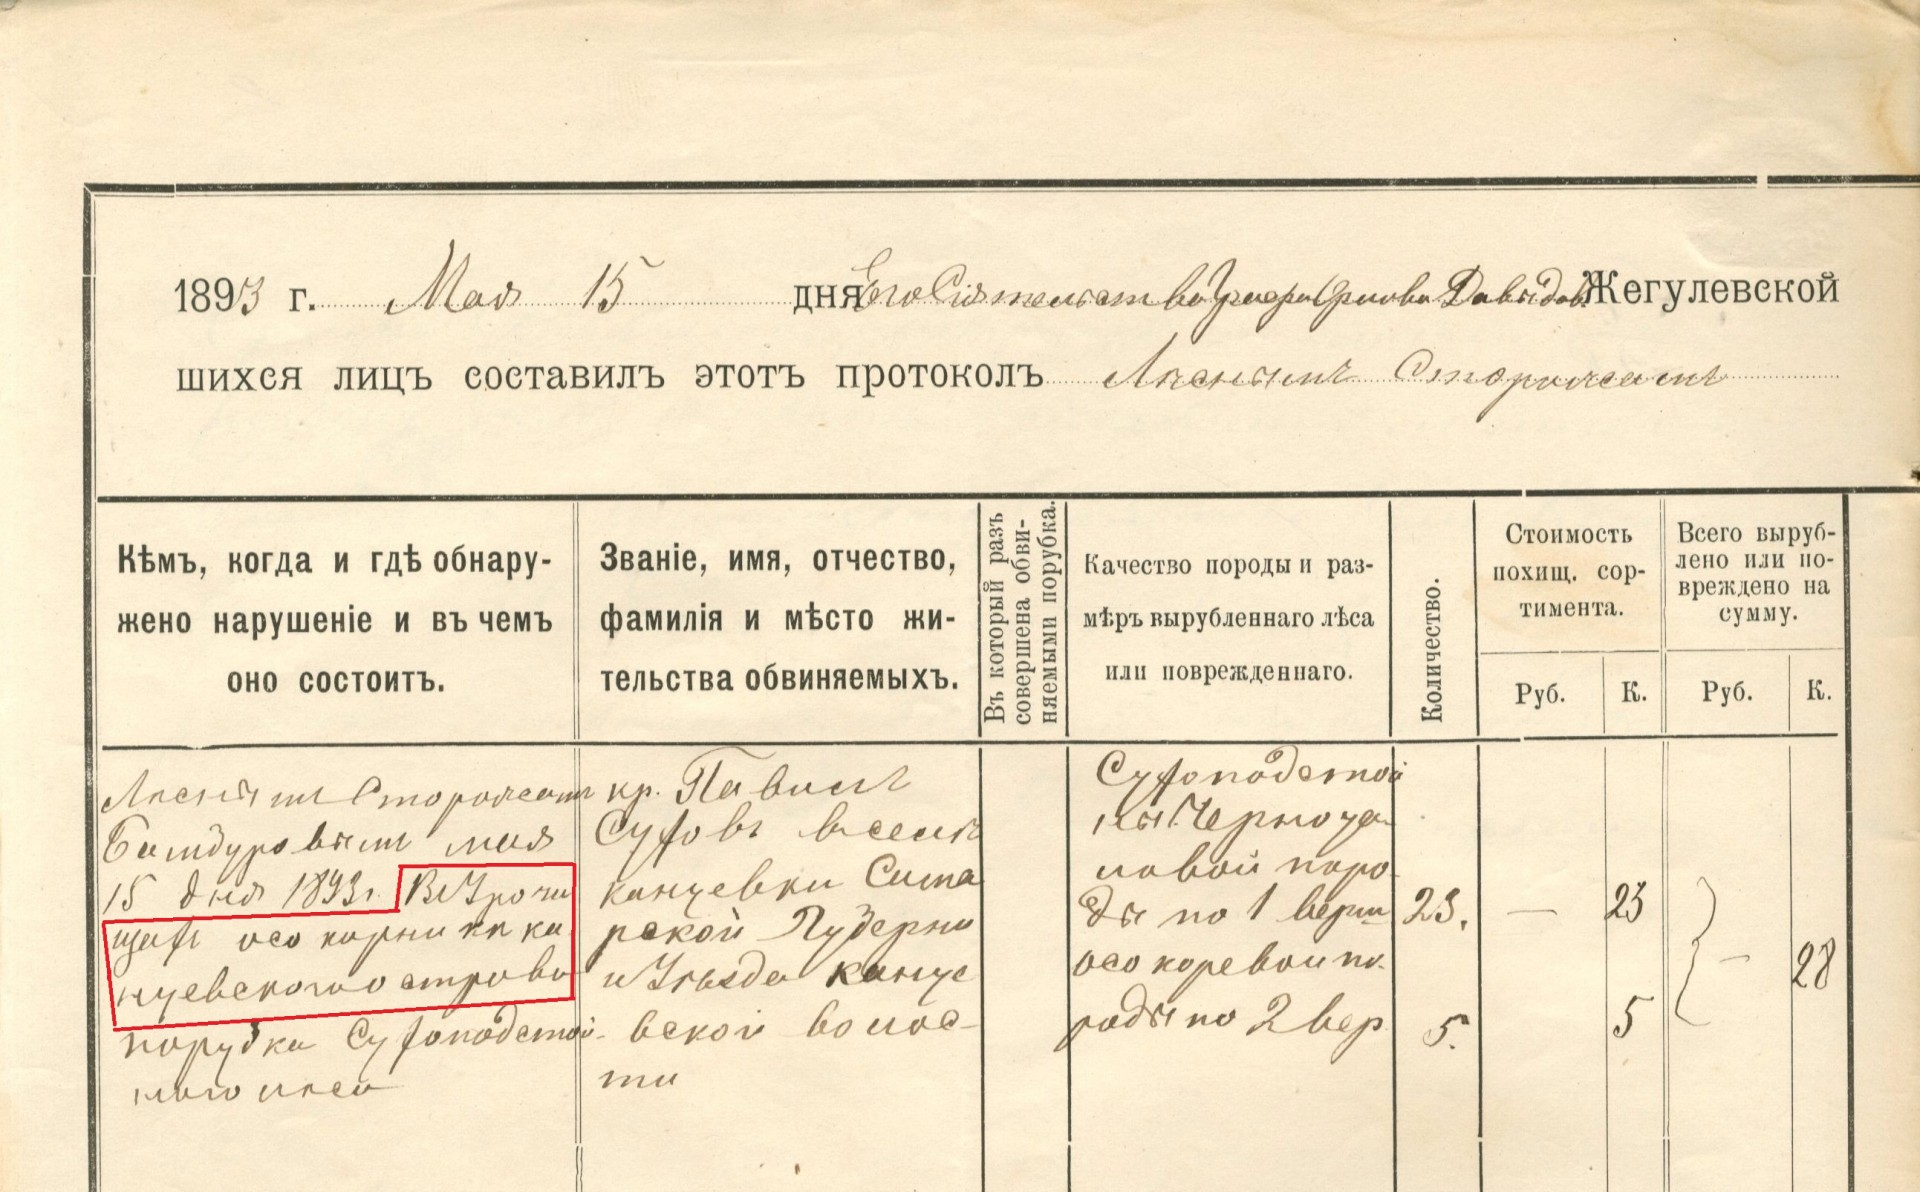 1893 г. Мая 15 дня Его Сіятельства Графа Орлова Давыдова Жегулевской
шихся лицъ составилъ этотъ протоколъ Лѣснымъ Сторожемъ
Кѣмъ, когда и гдѣ обнару-
жено нарушеніе и въ чемъ
оно состоитъ.
Званіе, имя, отчество,
фамилія и мѣсто жи-
тельства обвиняемыхъ.
Въ который разъ
совершена обви-
няемыми порубка.
Качество породы и раз-
мѣръ вырубленнаго лѣса
или поврежденнаго.
Количество.
Стоимость
похищ. сор-
тимента.
Руб. К.
Всего выруб-
лено или по-
вреждено на
сумму.
Руб. К.
Лѣснымъ Сторожемъ
мая
15 дня 1893 г. ВъУрочи
щахъ осокорникъ ка
нуевского острова
порубка Сухоподстой-
ного лѣса
кр. Павилъ
Суховъ вселѣ
кануевки Сама
рской Губерни
иУѣзда кануе
вской волос-
ти
Сухоподстой
ны Чернота
ловой поро
ды по 1 верш
осокоревои по.
роды по 2 вер
23.
5.
— 23
5
— 28